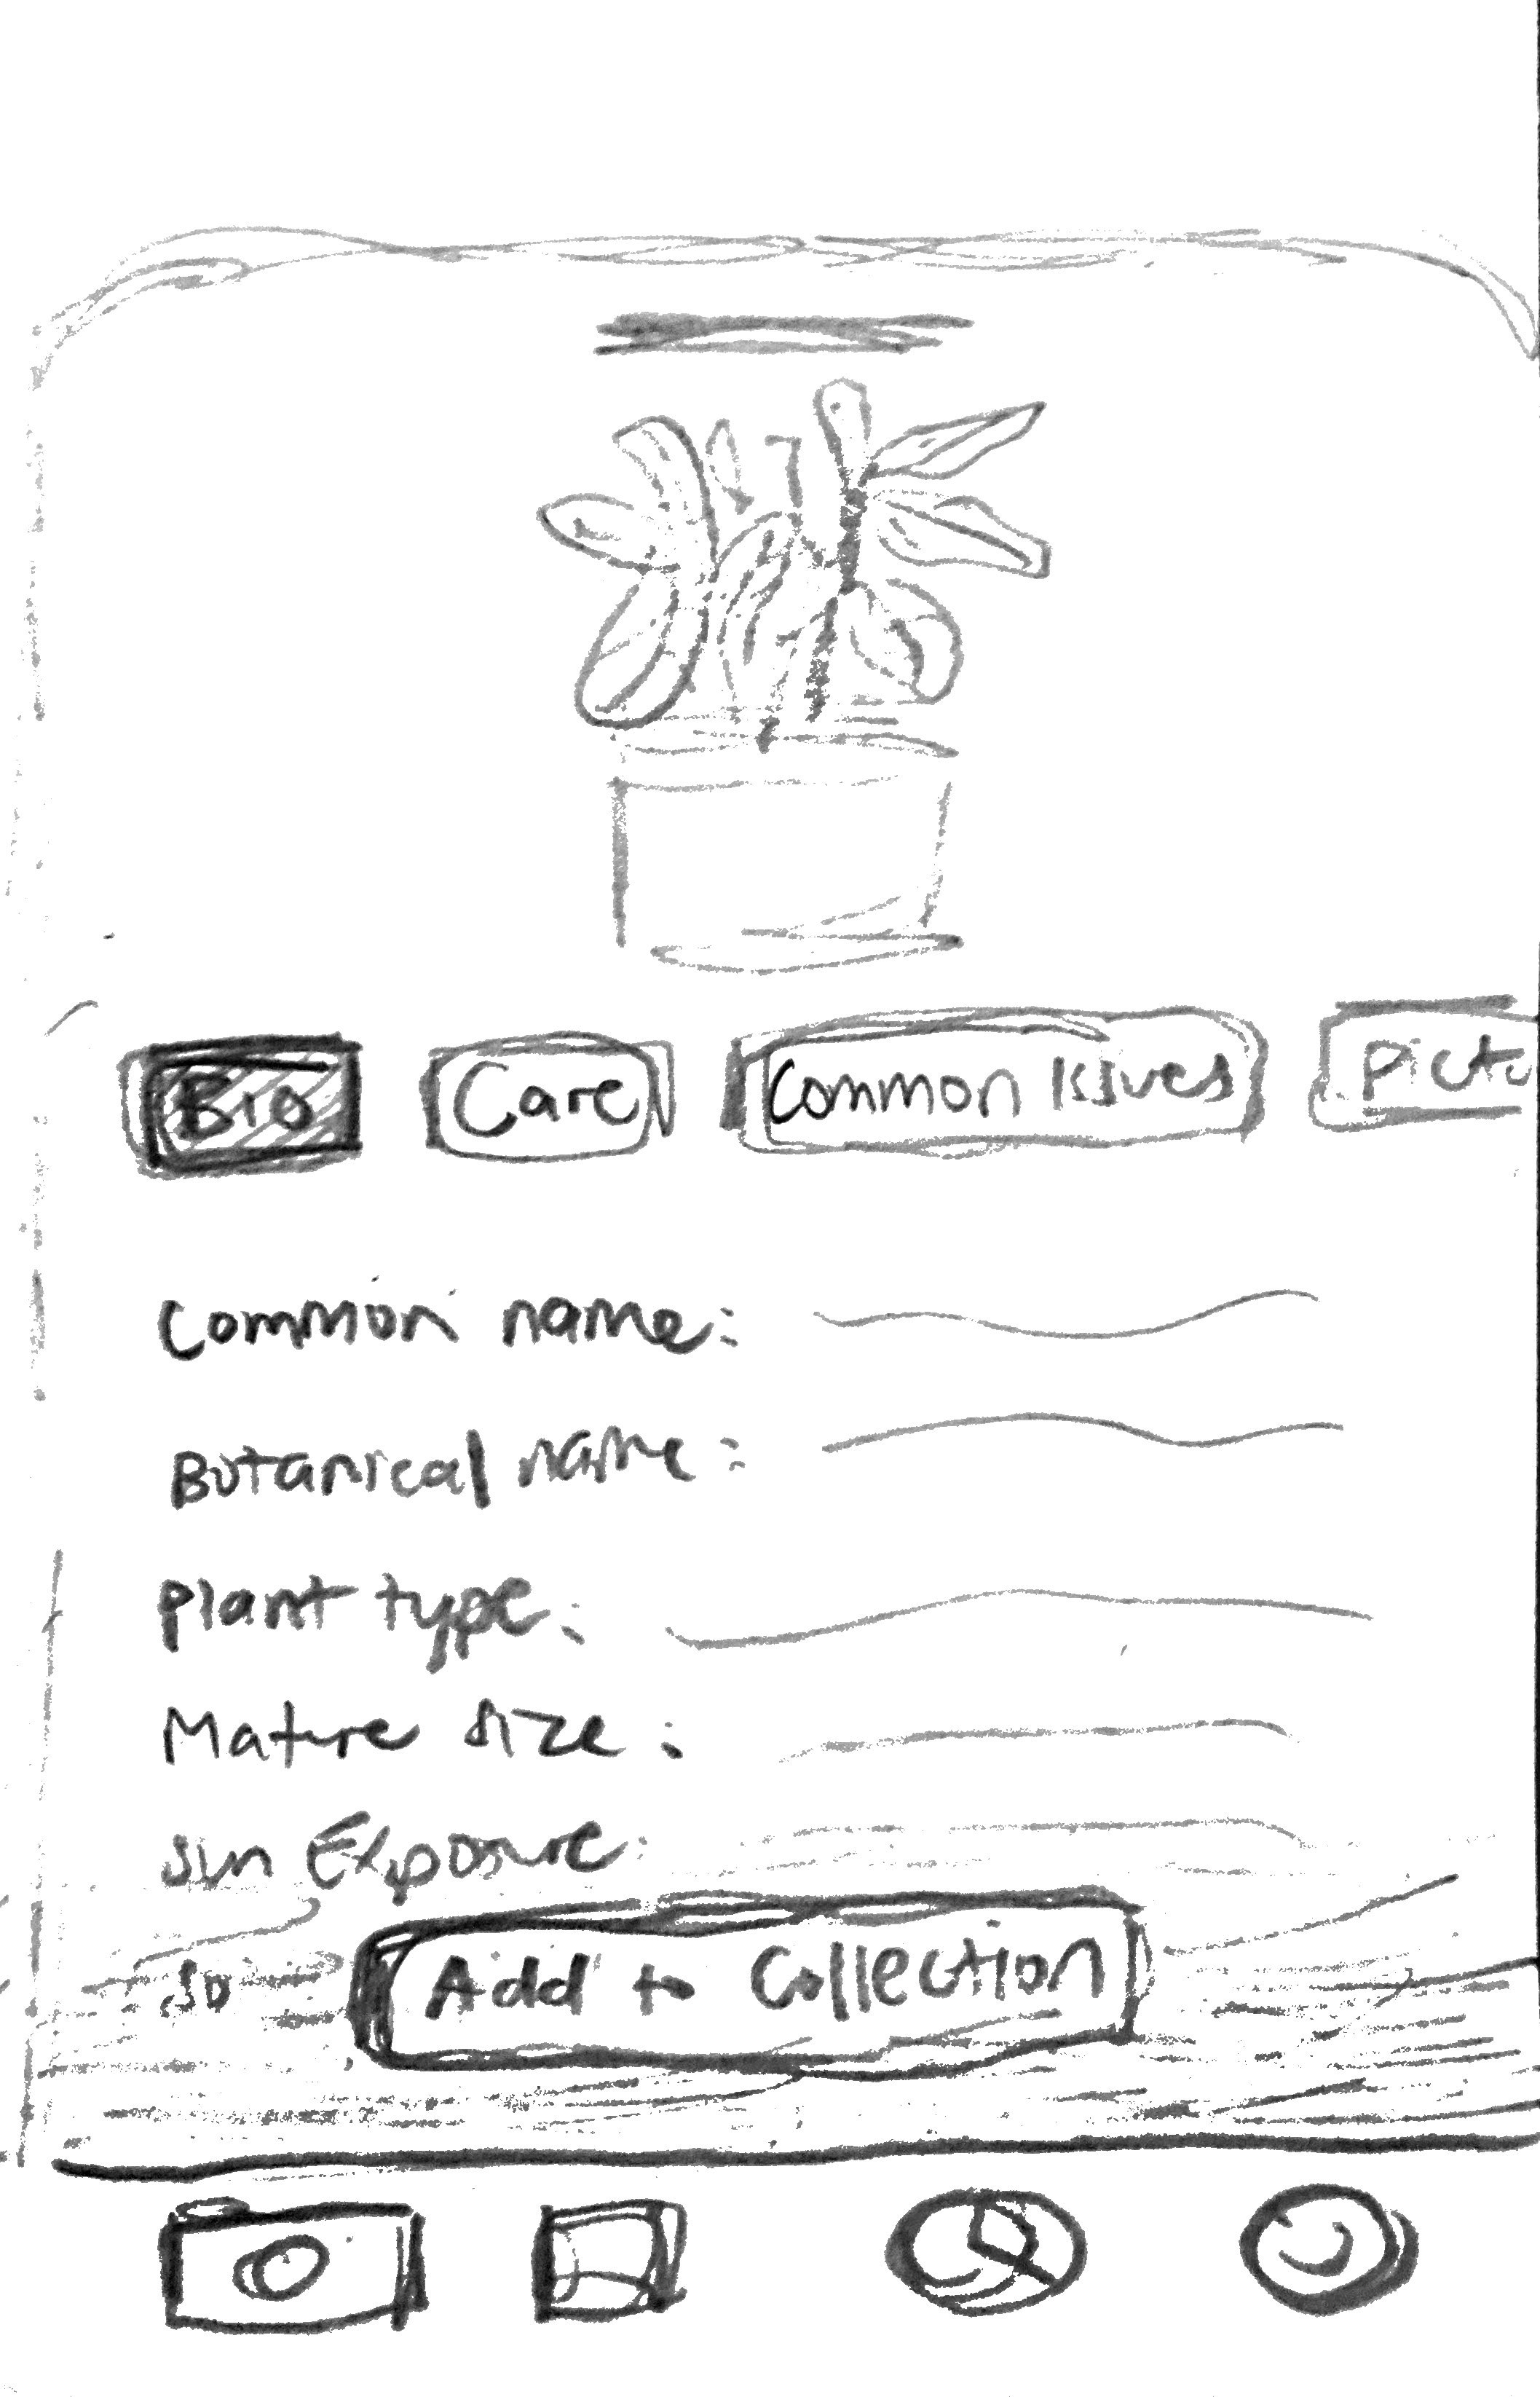 Bio Care Common Issues Pictu
Common name:
Botanical name:
Plant type:
Mature size:
Sun Exposure:
So
Add to Collection